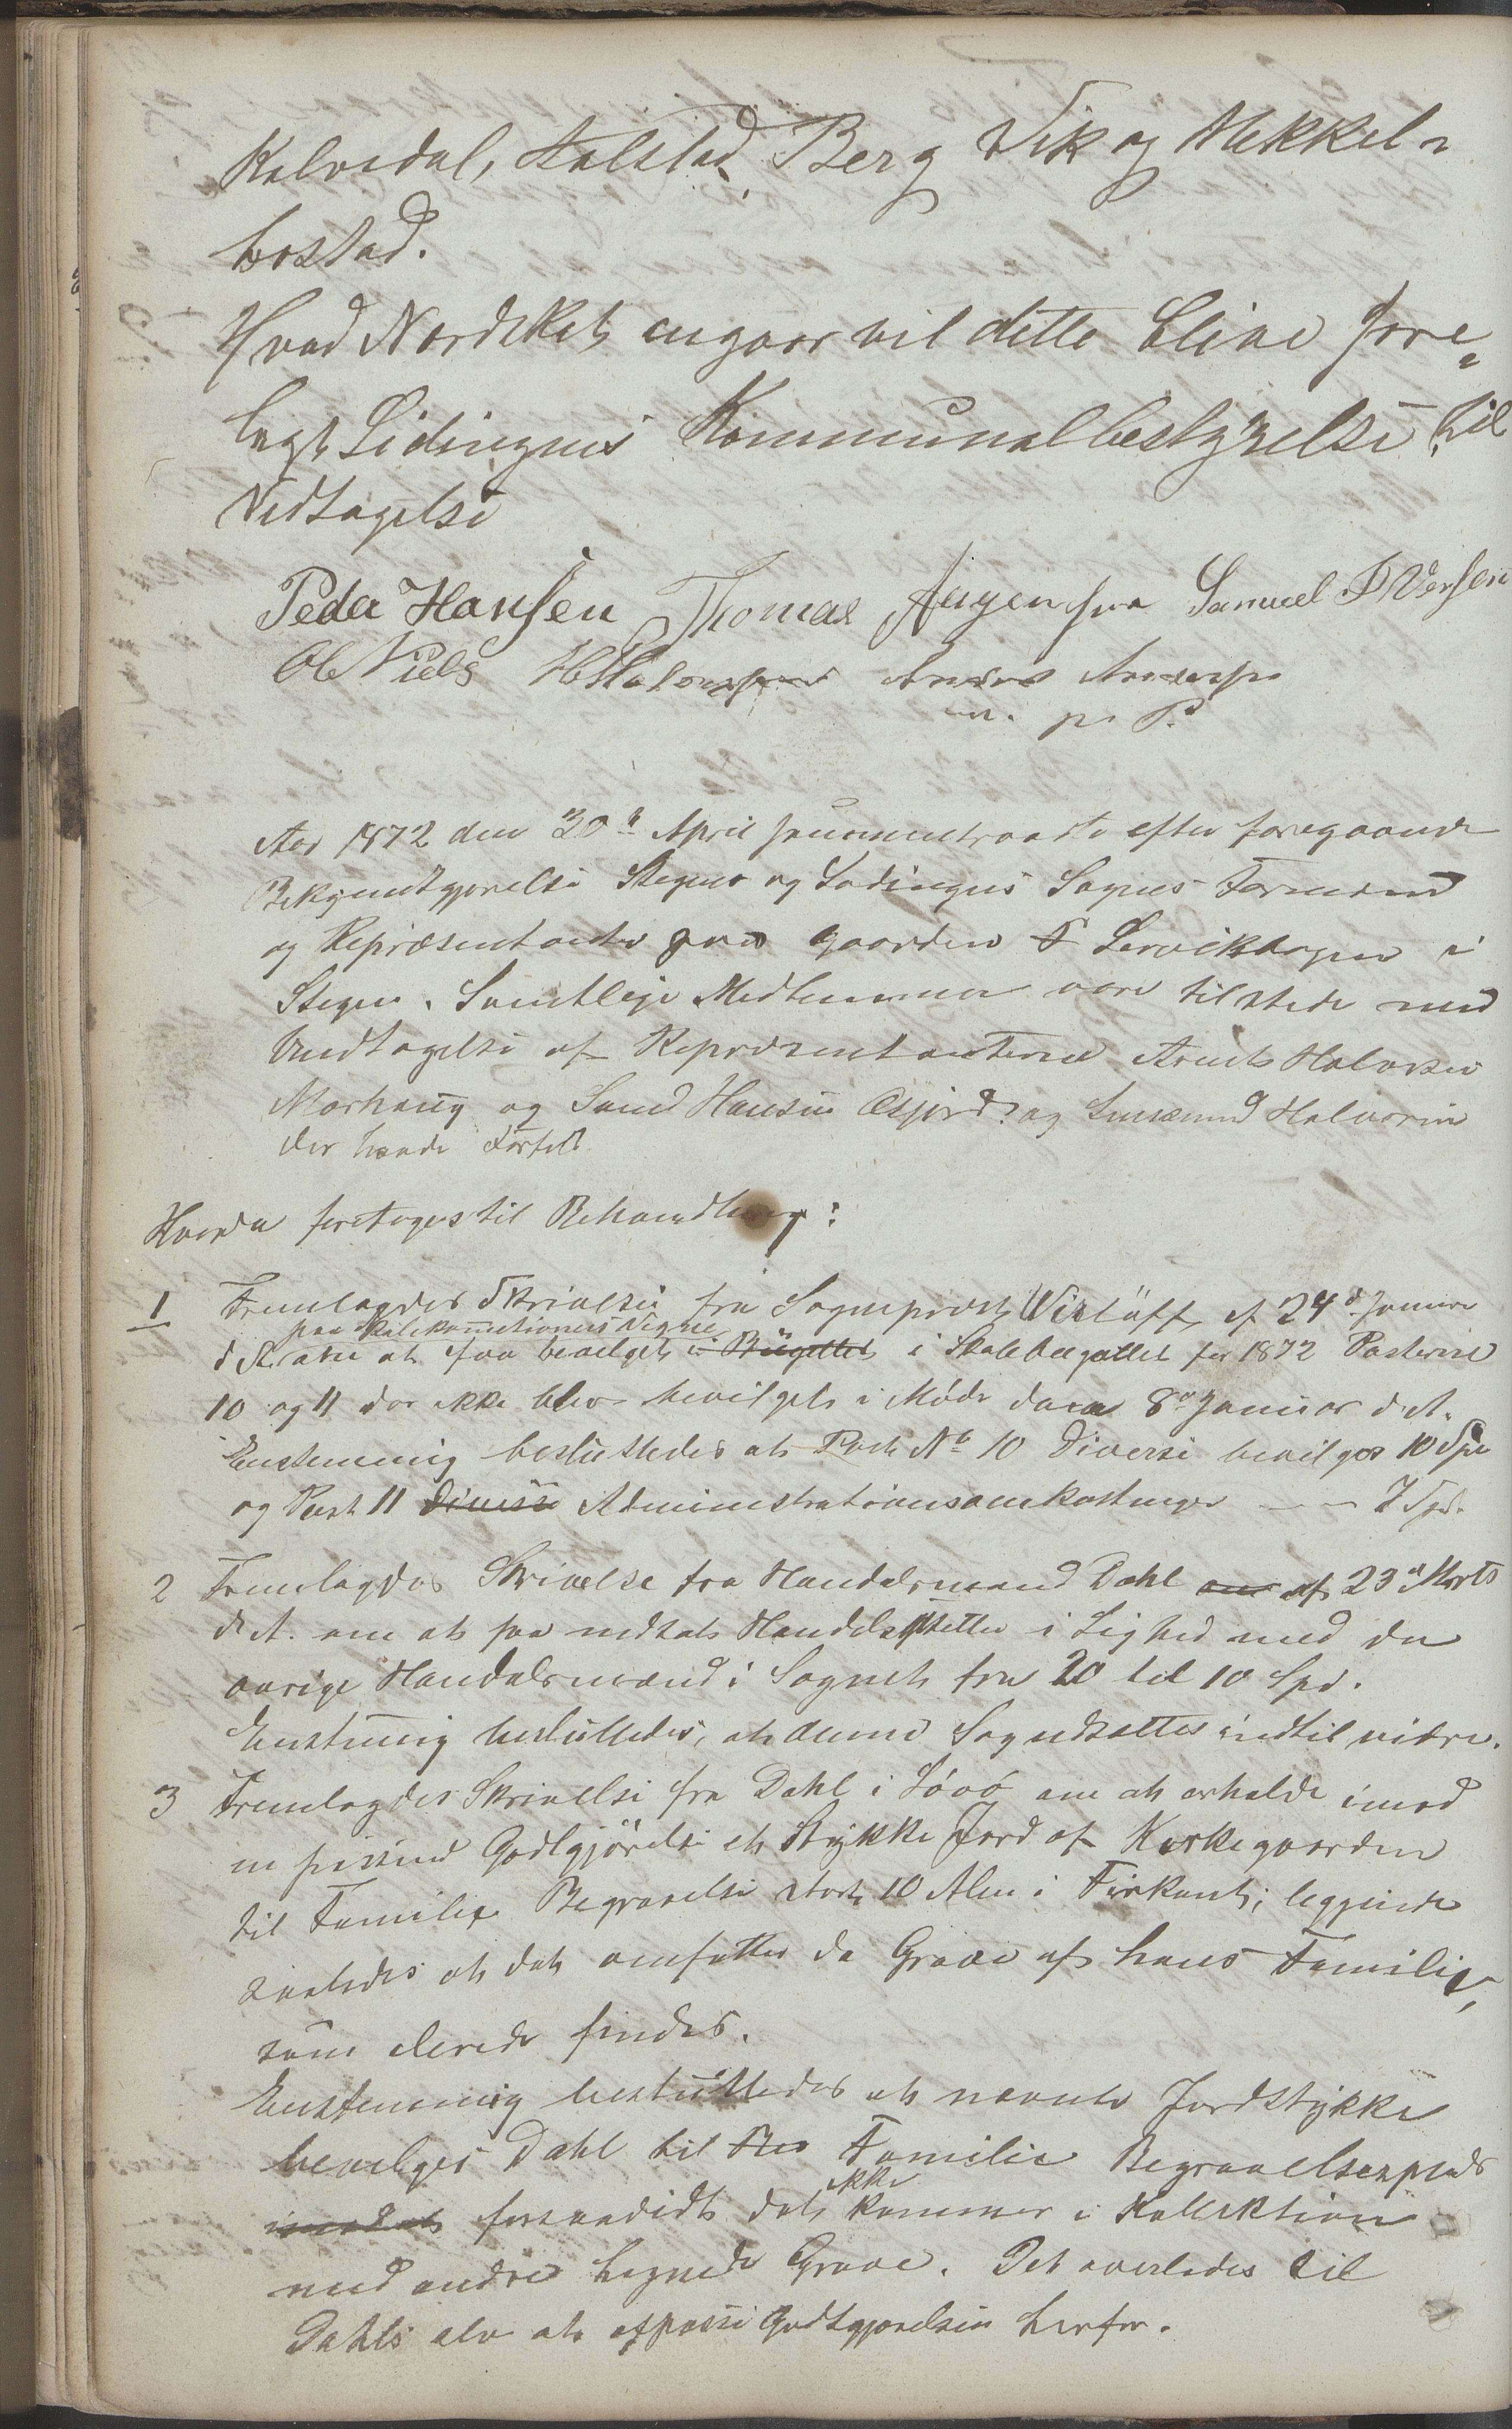 Kalvedal, Halstad, Berg Vik og Mekkel-
bostad.
Hvad Nordsket angaar vil dette blive fore-
lagt Lødingens Kommunalbestyrelse til
Vedtagelse
Peder Hansen Thomas Jürgensen Samuel Iversen
Ole Niels H Halvorsen Anders Andersen
m. p. P.
Aar 1872 den 30te April sammentraadte efter foregaaende
Bekjendtgjørelse Stegens og Lødingens Sognes Formænd
og Repræsentanter paa Gaarden Lervikbogen i
Stegen. Samtlige Medlemmer vare tilstede med
Undtagelse af Repræsentanterne Arent Halvorsen
Morhaug og Hansen og Halvorsen
der havde Forfald.
Hvorda foretoges til Behandling:
1 Fremlagdes Skrivelse fra Sogneprest Wisløff af 24de Januar
paa Skolekomitionens Vegne
d. A. om at faa bevilget i Bügettet i Skolebügettet for 1872 Posterne
10 og 11 der ikke blev bevilget i Møde den 8de Januar d. A.
Enstemmig besluttedes at Post No 10 Diverse bevilges 10 Spd
og Post 11 Diverse Administrationsomkostninger - - 7 Spd.
2 Fremlagdes Skrivelse fra Handelsmand Dahl om af 23de Marts
d. A. om at faa nedsat Handelsskatten i Lighed med de
øvrige Handelsmænd i Sognet fra 20 til 10 Spd.
Enstemig besluttedes, at denne Sag udsattes indtil videre.
3 Fremlagdes Skrivelse fra Dahl i Løvö om at erholde imod
en passend Godtgjörelse et Stykke Jord af Kirkegaarden
til Familie Begravelse stort 10 Alen i Firkant, liggende
saaledes at det omfatter de Grave af hans Familie,
som allerede findes.
Enstemmig besluttedes at nævnte Jordstykke
bevilges Dahl til Familie Begravelsesplads
ikke
forsaavidt det kommer i Kollektion
med andre hegnede Grave. Det overlodes til
Dahls selv at afpasse Godtgjørelsen herfor.